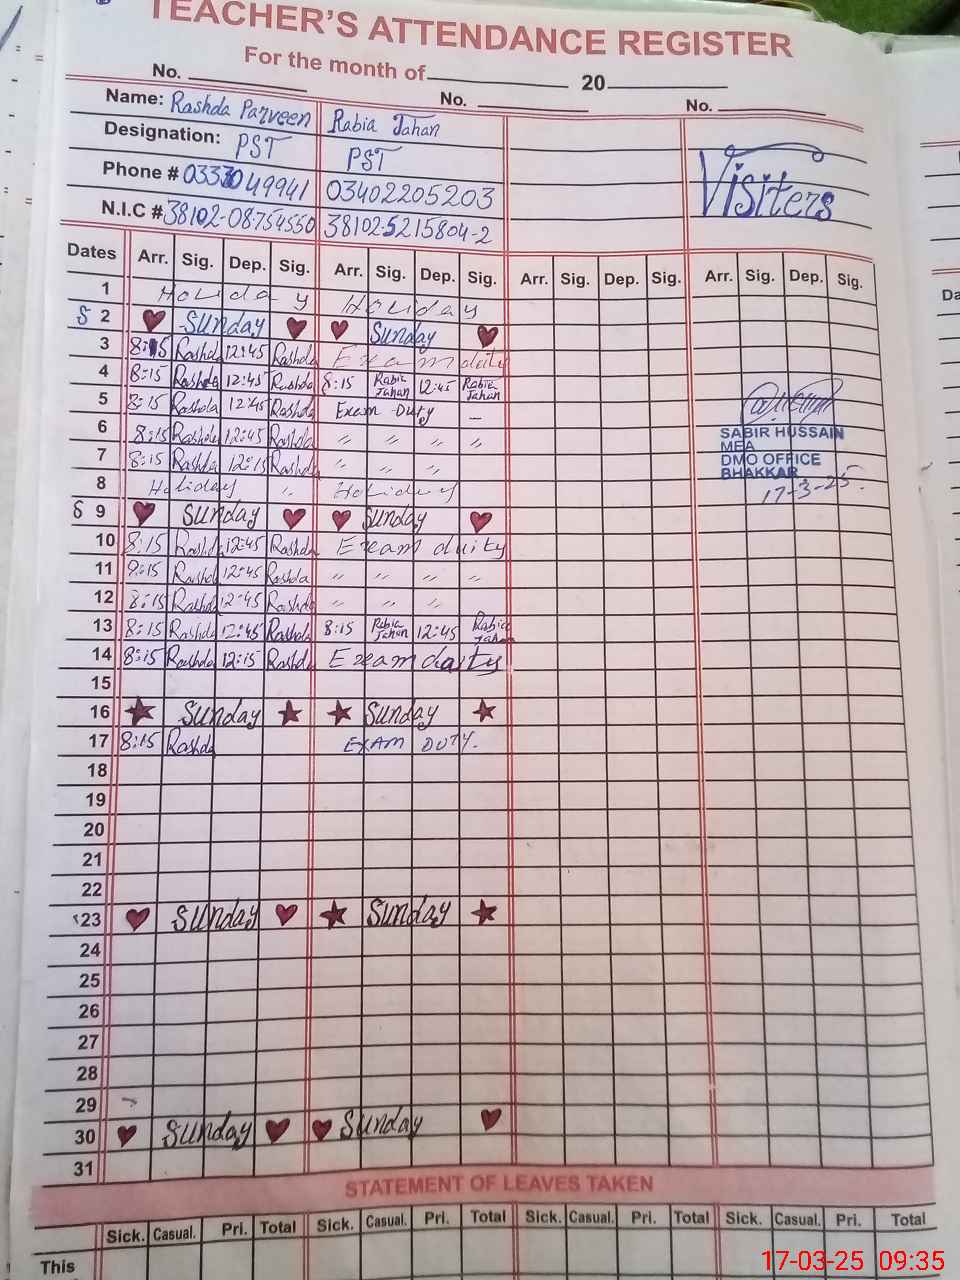 TEACHER'S ATTENDANCE REGISTER
For the month of 20
No. No. No.
Name: Rashda Parveen Rabia Jahan
Designation: PST PST Visiters
Phone # 0333049941 03402205203
N.I.C # 38102-08754550 38102-5215804-2
Dates Arr. Sig. Dep. Sig. Arr. Sig. Dep. Sig. Arr. Sig. Dep. Sig. Arr. Sig. Dep. Sig.
1 Holiday Holiday
S 2 Sunday Sunday
3 8:15 Rashda 12:45 Rashda Exam duity
4 8:15 Rashda 12:45 Rashda 8:15 Rabia Jahan 12:45 Rabia Jahan
5 8:15 Rashda 12:45 Rashda Exam Duty —
6 8:15 Rashda 12:45 Rashda " " " "
7 8:15 Rashda 12:15 Rashda " " " "
8 Holiday " Holiday
S 9 Sunday Sunday
10 8:15 Rashda 12:45 Rashda Exam duity
11 8:15 Rashda 12:45 Rashda " " " "
12 8:15 Rashda 12:45 Rashda " " "
13 8:15 Rashda 12:45 Rashda 8:15 Rabia Jahan 12:45 Rabia Jahan
14 8:15 Rashda 12:15 Rashda Exam duity
15
16 Sunday Sunday
17 8:15 Rashda EXAM DUTY.
18
19
20
21
22
23 Sunday Sunday
24
25
26
27
28
29
30 Sunday Sunday
31
SABIR HUSSAIN
MEA
DMO OFFICE
BHAKKAR
17-3-25.
STATEMENT OF LEAVES TAKEN
Sick. Casual. Pri. Total Sick. Casual. Pri. Total Sick. Casual. Pri. Total Sick. Casual. Pri. Total
This
Da
17-03-25 09:35